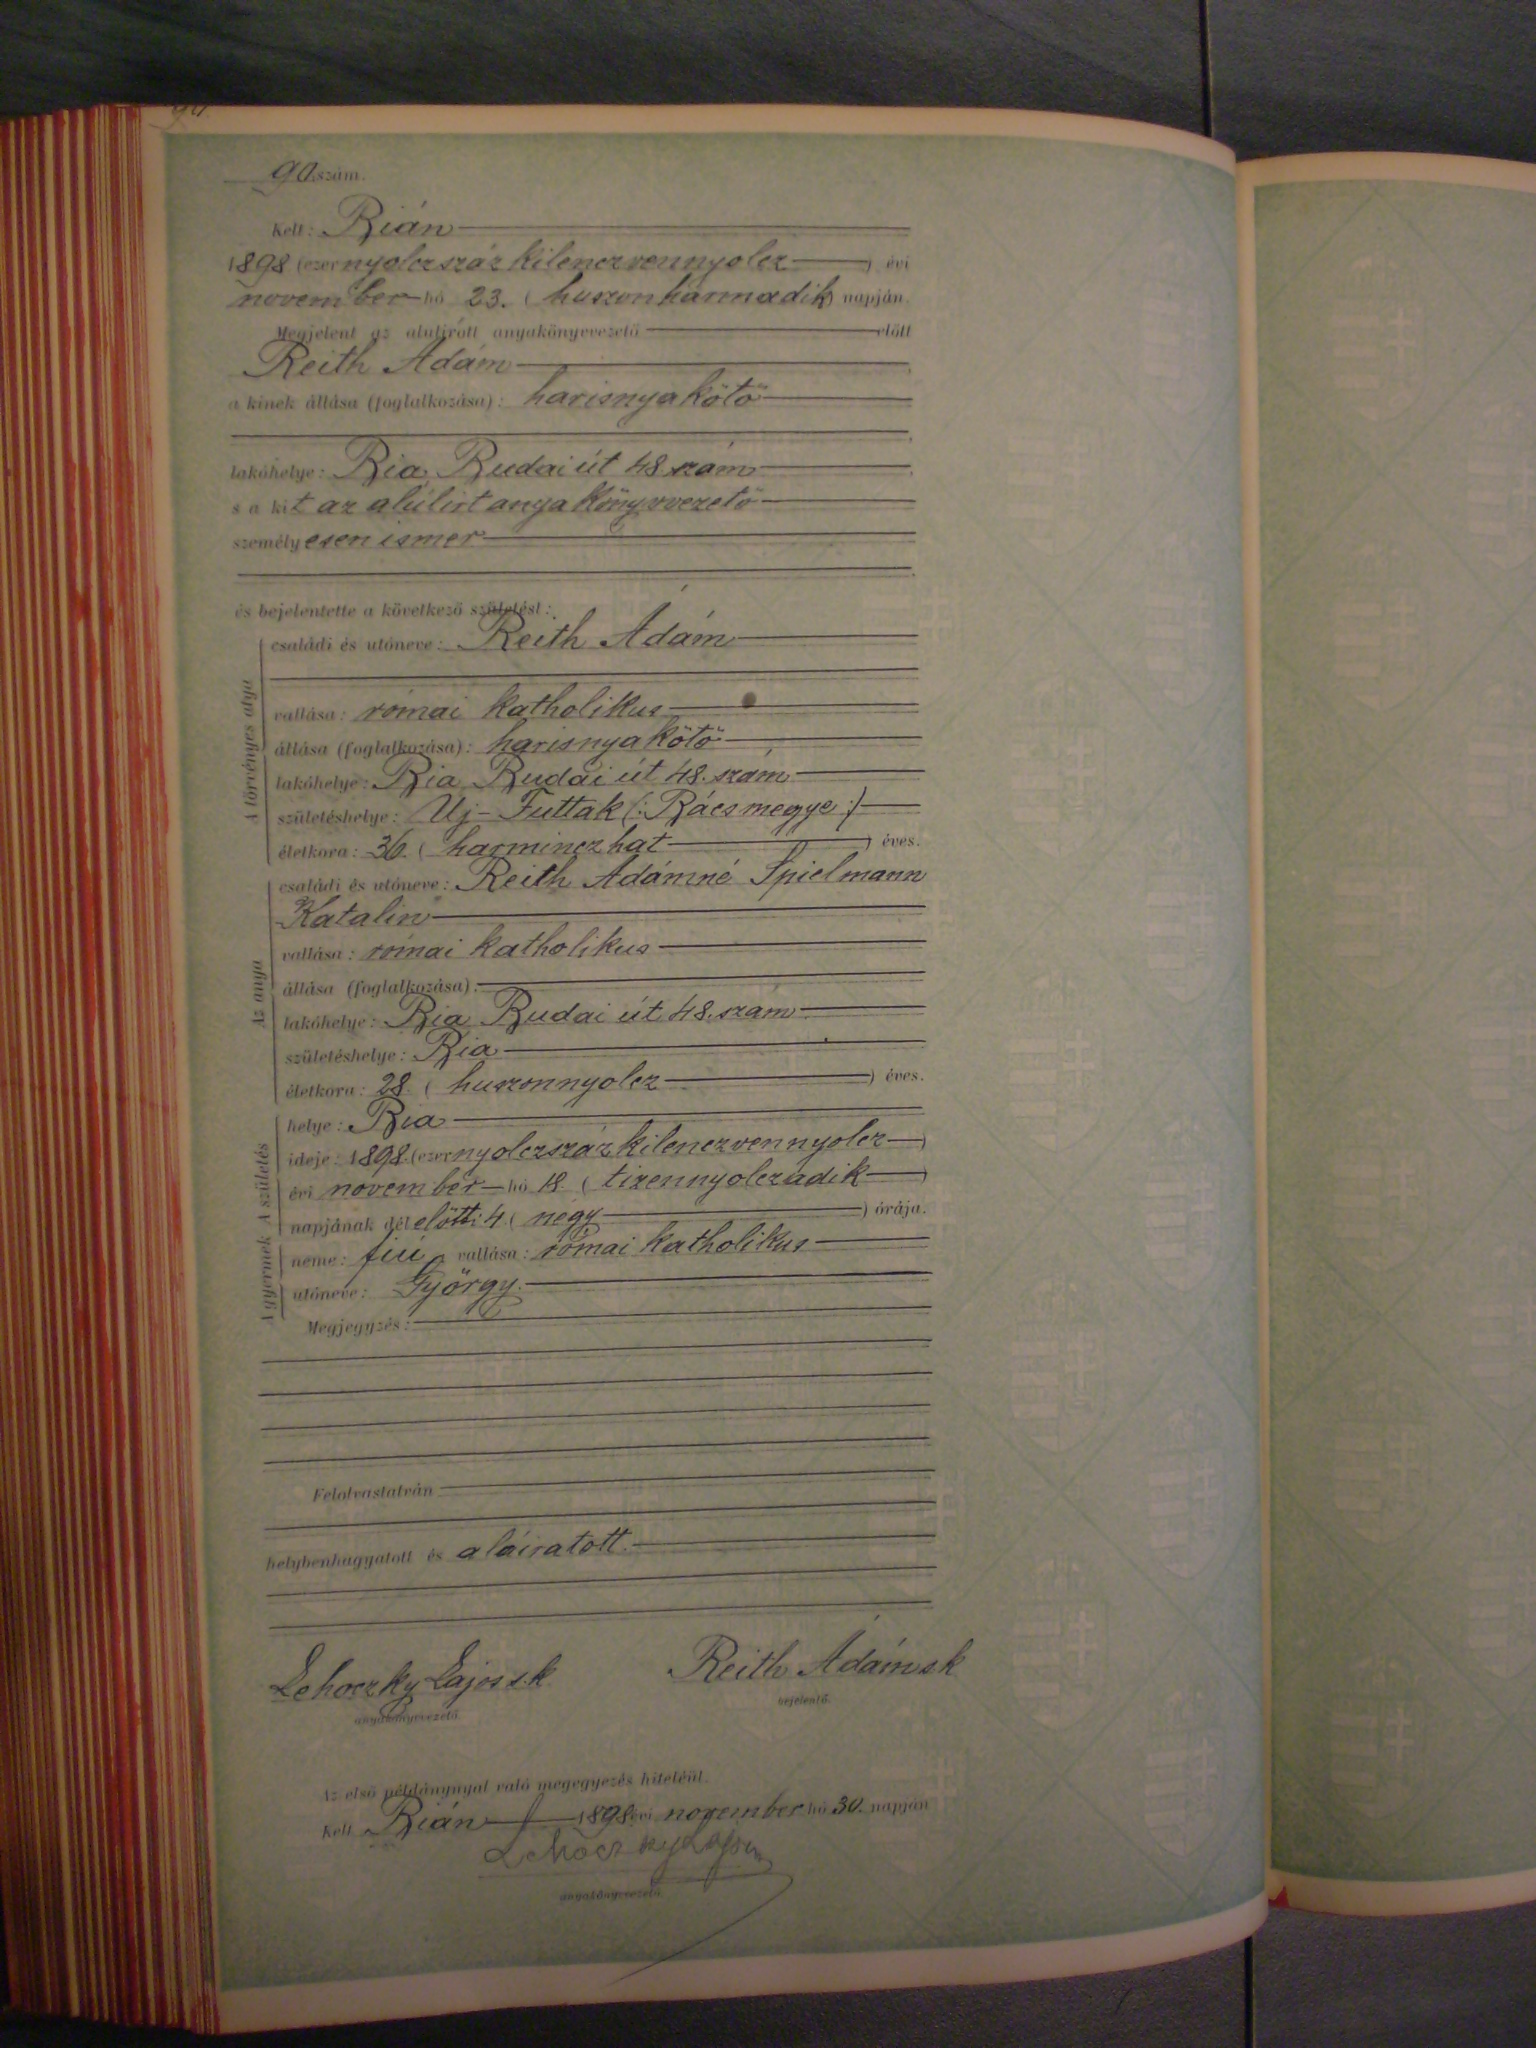 90. szám.
Kelt: Bián
1898 (ezernyolczszázkilenczvennyolcz) évi
november hó 23. (huszonharmadik) napján.
Megjelent az alulirott anyakönyvvezető előtt
Reith Ádám
a kinek állása (foglalkozása): harisnyakötő
lakóhelye: Bia, Budai út 48 szám
s a kit az alúlirt anyakönyvvezető
személyesen ismer
és bejelentette a következő születést:
A törvényes atya
családi és utóneve: Reith Ádám
vallása: római katholikus
állása (foglalkozása): harisnyakötő
lakóhelye: Bia Budai út 48. szám
születéshelye: Uj-Futtak (: Bácsmegye :)
életkora: 36. (harminczhat) éves.
Az anya
családi és utóneve: Reith Ádámné Spielmann
Katalin
vallása: római katholikus
állása (foglalkozása):
lakóhelye: Bia Budai út 48. szám
születéshelye: Bia
életkora: 28. (huszonnyolcz) éves.
A születés
helye: Bia
ideje: 1898. (ezernyolczszázkilenczvennyolcz)
évi november hó 18. (tizennyolczadik)
napjának délelőtti 4 (négy) órája.
A gyermek
neme: fiú vallása: római katholikus
utóneve: György.
Megjegyzés:
Felolvastatván
helybenhagyatott és aláiratott.
Lehoczky Lajos s.k. Reith Ádám s k
anyakönyvvezető. bejelentő.
Az első példánynyal való megegyezés hiteléül.
Kelt Bián 1898 évi november hó 30. napján
Lehoczky Lajos
anyakönyvvezető.